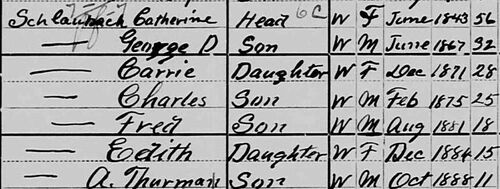 Schlaubach Catherine Head 6C W F June 1843 56
— George D Son W M June 1867 32
— Carrie Daughter W F Dec 1871 28
— Charles Son W M Feb 1875 25
— Fred Son W M Aug 1881 18
— Edith Daughter W F Dec 1884 15
— A. Thurman Son W M Oct 1888 11